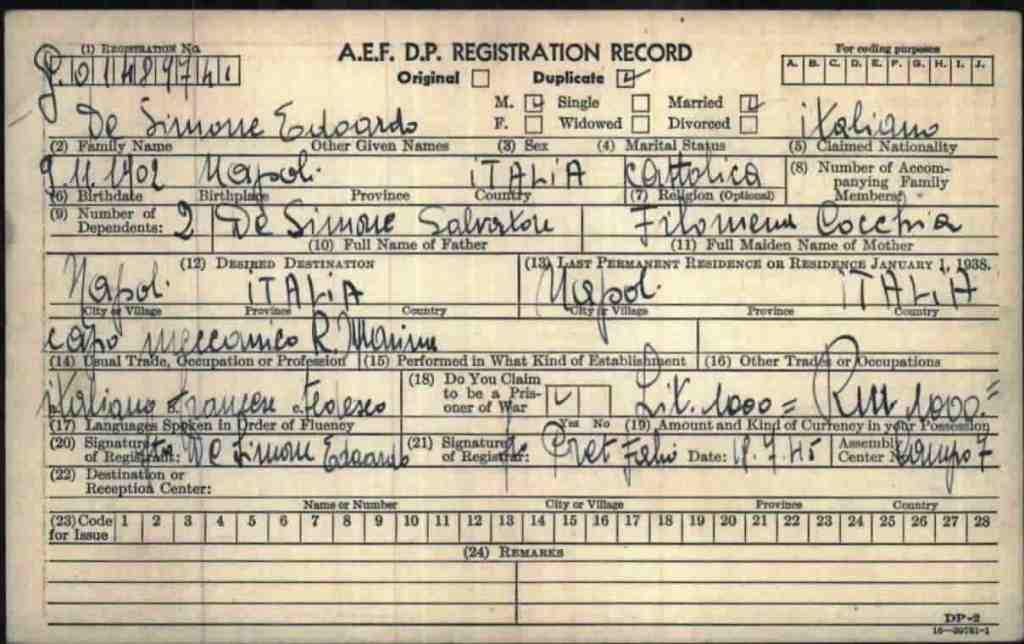 (1) REGISTRATION No.
A.E.F. D.P. REGISTRATION RECORD
For coding purposes
Original Duplicate
A. B. C. D. E. F. G. H. I. J.
M. Single Married
F. Widowed Divorced
De Simone Edoardo italiano
(2) Family Name Other Given Names (3) Sex (4) Marital Status (5) Claimed Nationality
9.11.1902 Napoli ITALIA Cattolica
(8) Number of Accompanying Family Members:
(6) Birthdate Birthplace Province Country (7) Religion (Optional)
(9) Number of Dependents: 2 De Simone Salvatore Filomena Cocchia
(10) Full Name of Father (11) Full Maiden Name of Mother
(12) DESIRED DESTINATION (13) LAST PERMANENT RESIDENCE OR RESIDENCE JANUARY 1, 1938.
Napoli ITALIA Napoli ITALIA
City or Village Province Country City or Village Province Country
capo meccanico R. Marina
(14) Usual Trade, Occupation or Profession (15) Performed in What Kind of Establishment (16) Other Trades or Occupations
a. italiano b. francese c. tedesco
(18) Do You Claim to be a Prisoner of War Yes No
Lit. 1000 = RM 1000.=
(17) Languages Spoken in Order of Fluency (19) Amount and Kind of Currency in your Possession
(20) Signature of Registrant: De Simone Edoardo (21) Signature of Registrar: Date: 18.7.45 Assembly Center No. Campo 7
(22) Destination or Reception Center:
Name or Number City or Village Province Country
(23) Code for Issue 1 2 3 4 5 6 7 8 9 10 11 12 13 14 15 16 17 18 19 20 21 22 23 24 25 26 27 28
(24) REMARKS
DP-2
16—39781-1